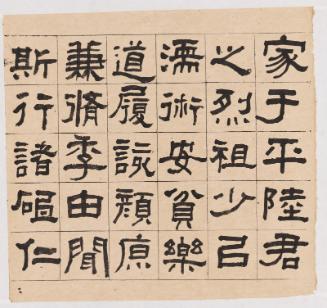 家于平陸君
之烈祖少㠯
濡術安貧樂
道履該顏原
兼脩季由聞
斯行諸砥仁